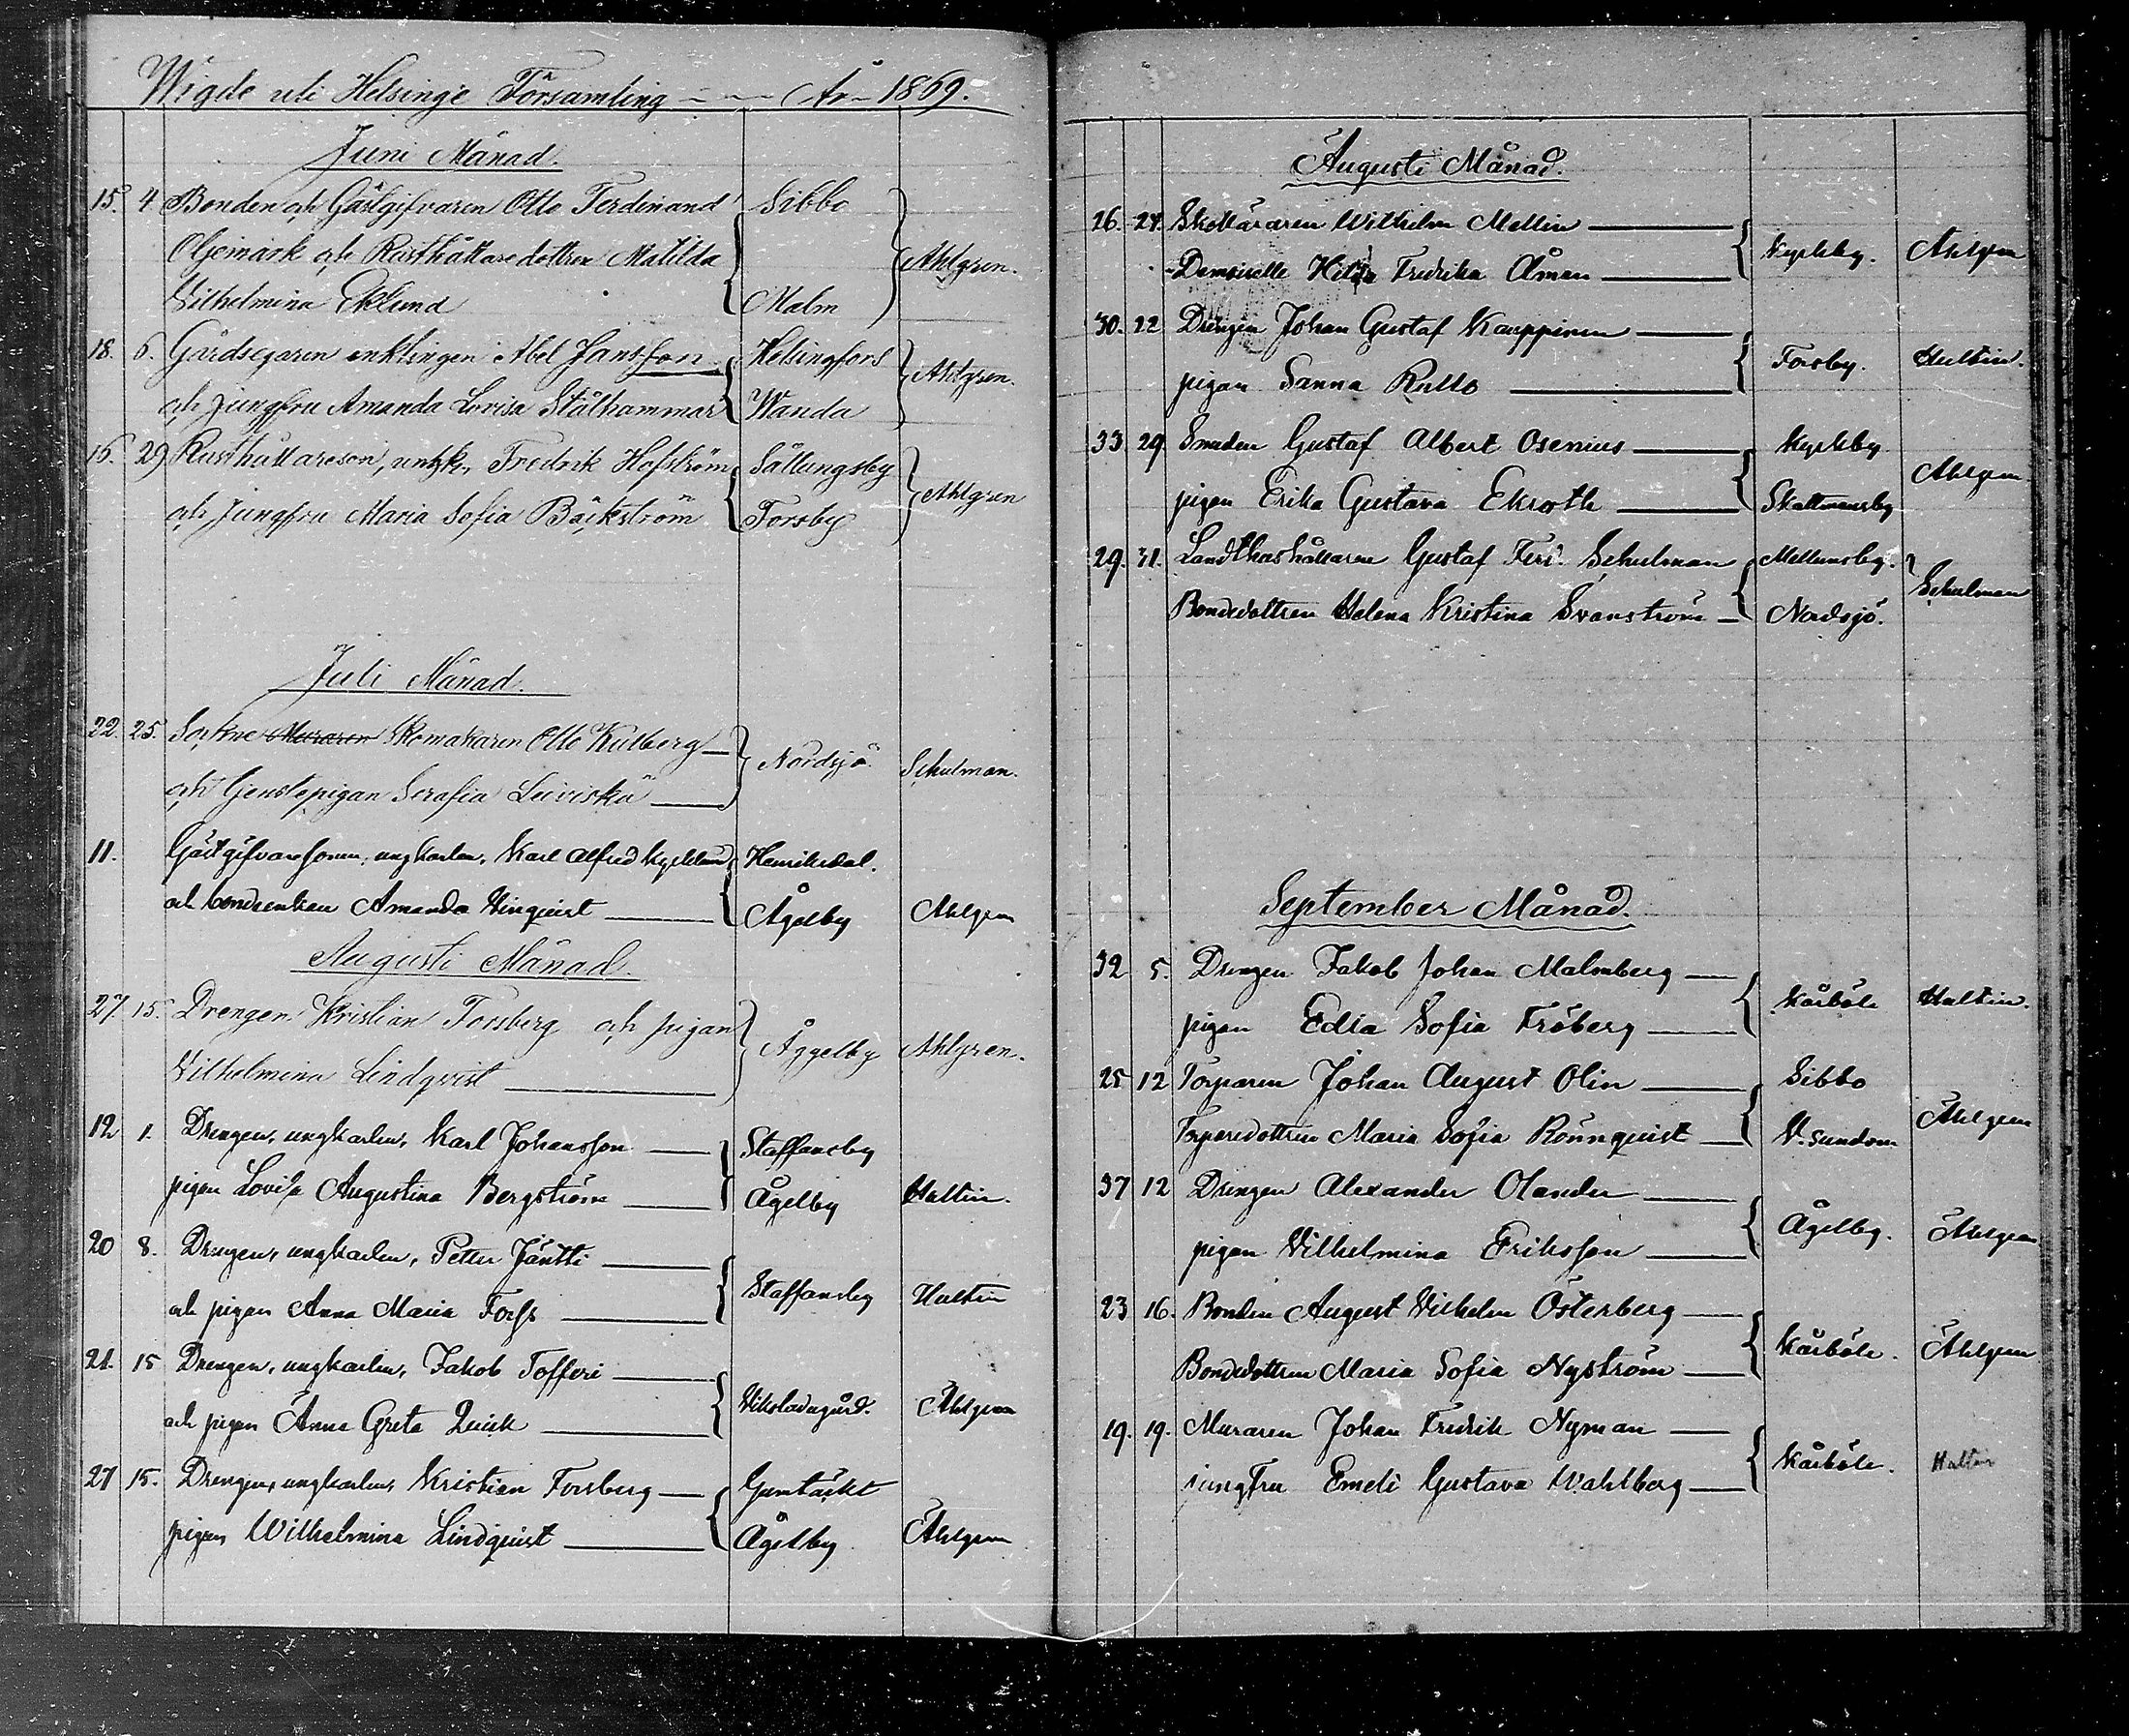 Wigde uti Helsinge Församling - - - År 1869.
Juni Månad.
15. 4 Bonden och Gästgifvaren Otto Ferdinand Sibbo
Oljemark och Rusthållaredottren Matilda Ahlgren.
Vilhelmina Eklund Malm
18. 6. Gårdsegaren enklingen Abel Jansson Helsingfors Ahlgren.
och Jungfru Amanda Lovisa Stålhammar Wanda
16. 29 Rusthållareson, ungk. Fredrik Hofström
och Jungfru Maria Sofia Bäckström Forsby Ahlgren
Juli Månad.
22. 25. Sockne Muraren Skomakaren Otto Kulberg Nordsjö. Schulman.
och Genstepigan Serafia Leiviskä
11. Gästgifvaresonen, ungkarlen, Karl Alfred Kycklund Henriksdal.
och bondeenkan Amanda Vinquist Ågelby Ahlgren
Augusti Månad.
27. 15. Drengen Kristian Forsberg och pigan Åggelby Ahlgren.
Vilhelmina Lindqvist
12 1. Drengen, ungkarlen, Karl Johansson Staffansby
pigan Lovisa Augustina Bergström Ågelby Hultin.
20 8. Drengen, ungkarlen, Petter Jäntti
och pigan Anna Maria Forss Staffansby Hultin
21. 15 Drengen, ungkarlen, Jakob Tofferi
och pigan Anna Greta Quick Ahlgren
27 15. Drengen, ungkarlen, Kristian Forsberg Gumtäckt
pigan Wilhelmina Lindquist Ågelby Ahlgren
Augusti Månad.
26. 27. Wilhelm Mellin
Demoiselle Hilda Fredrika Åman Kyrkby. Ahlgren
30. 22 Drengen Johan Gustaf Kauppinen
pigan Sanna Rullo Forsby. Hultin.
33 29. Smeden Gustaf Albert Osenius Kyrkby
pigan Erika Gustava Ekroth Skattmansby Ahlgren
29. 31. Gustaf Ferd. Schulman Mellunsby.
Bondedottren Helena Kristina Svanström Nordsjö. Schulman
September Månad.
32 5. Drengen Jakob Johan Malmberg
pigan Edla Sofia Fröberg Kårböle Hultin.
25 12 Torparen Johan August Olin Sibbo
Torparedottren Maria Sofia Rönnquist V. sundom Ahlgren
37 12 Drengen Alexander Olander
pigan Vilhelmina Eriksson Ågelby. Ahlgren
23 16. Bonden August Vilhelm Österberg
Bondedottren Maria Sofia Nyström Kårböle. Ahlgren
19. 19. Muraren Johan Fredrik Nyman
jungfru Emeli Gustava Wahlberg Kårböle. Hultin